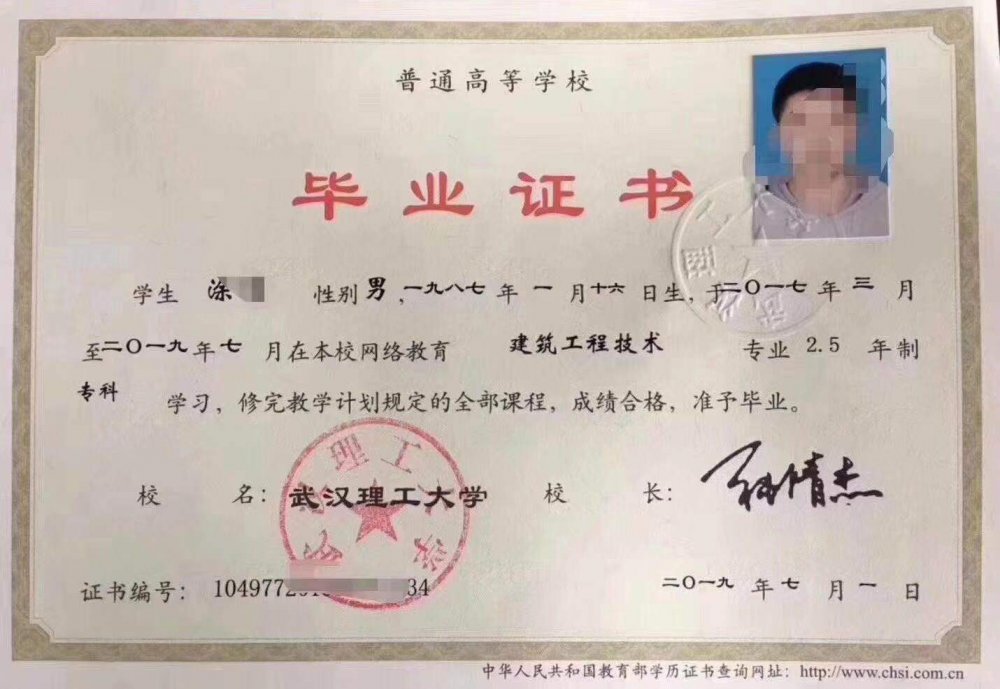 普通高等学校
毕业证书
学生 涂 性别 男 ,一九八七 年 一 月 十六 日生, 于 二〇一七 年 三 月
至 二〇一九 年 七 月在本校网络教育 建筑工程技术 专业 2.5 年制
专科 学习, 修完教学计划规定的全部课程, 成绩合格, 准予毕业。
校 名: 武汉理工大学 校 长:
证书编号: 1049772 34 二〇一九 年 七 月 一 日
中华人民共和国教育部学历证书查询网址: http://www.chsi.com.cn